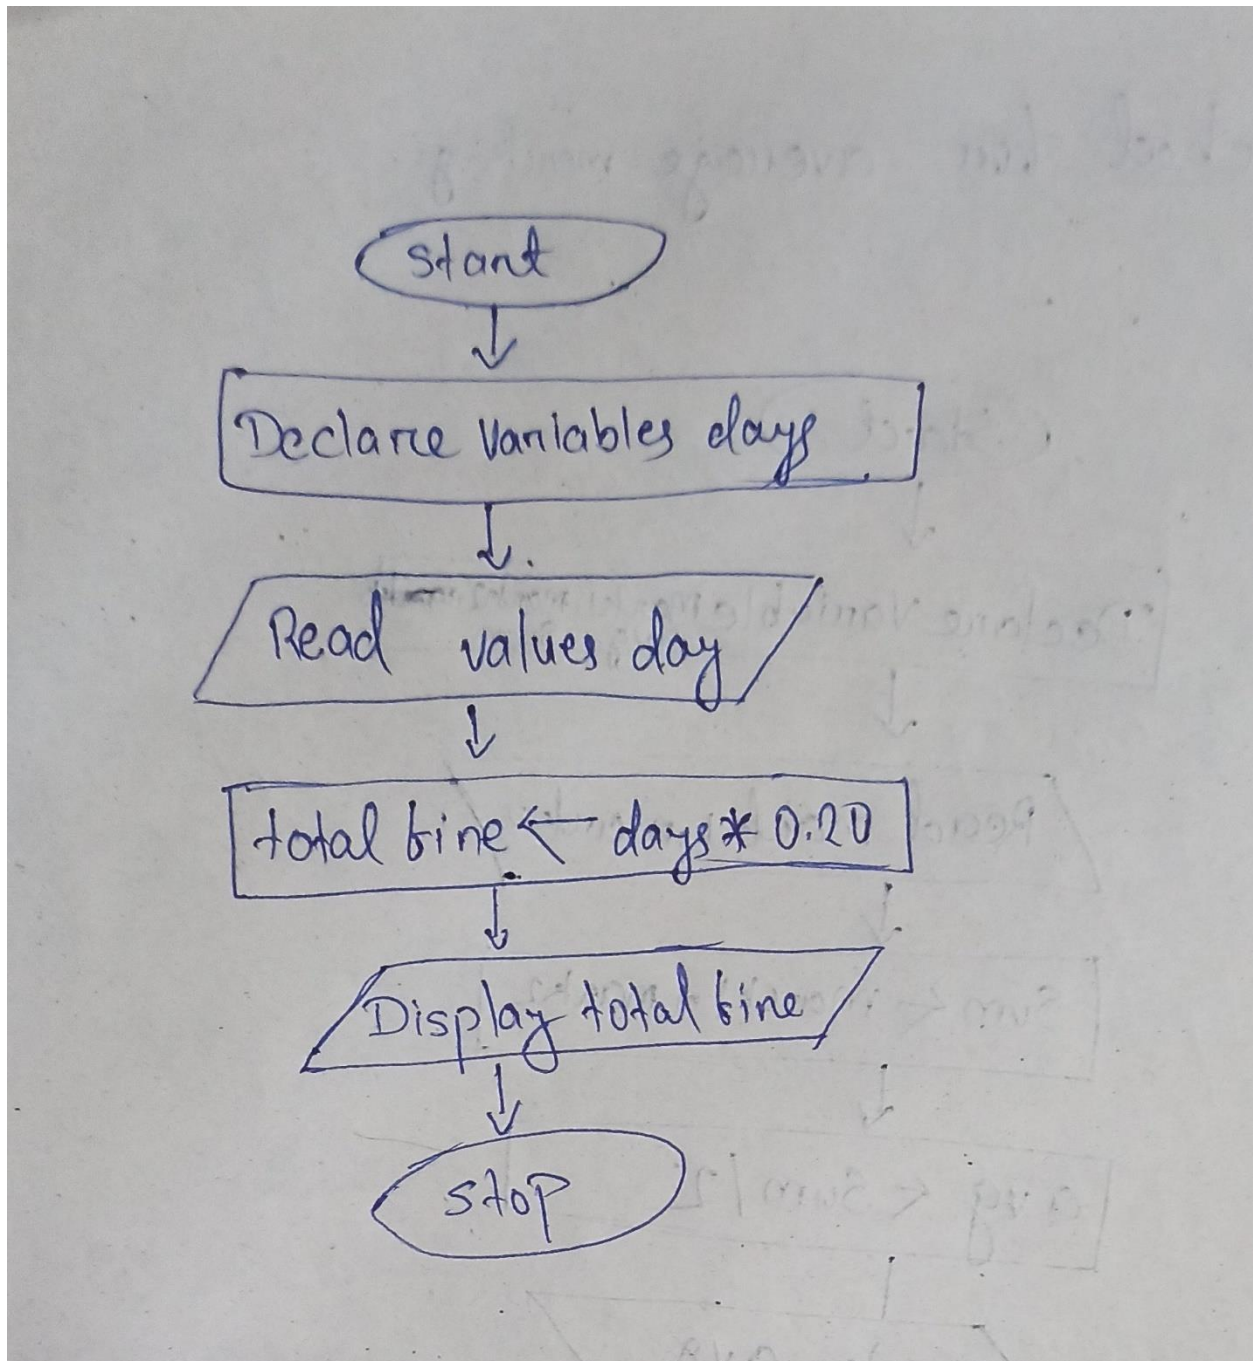 start
Declare variables days
Read values day
total fine ← days * 0.20
Display total fine
stop